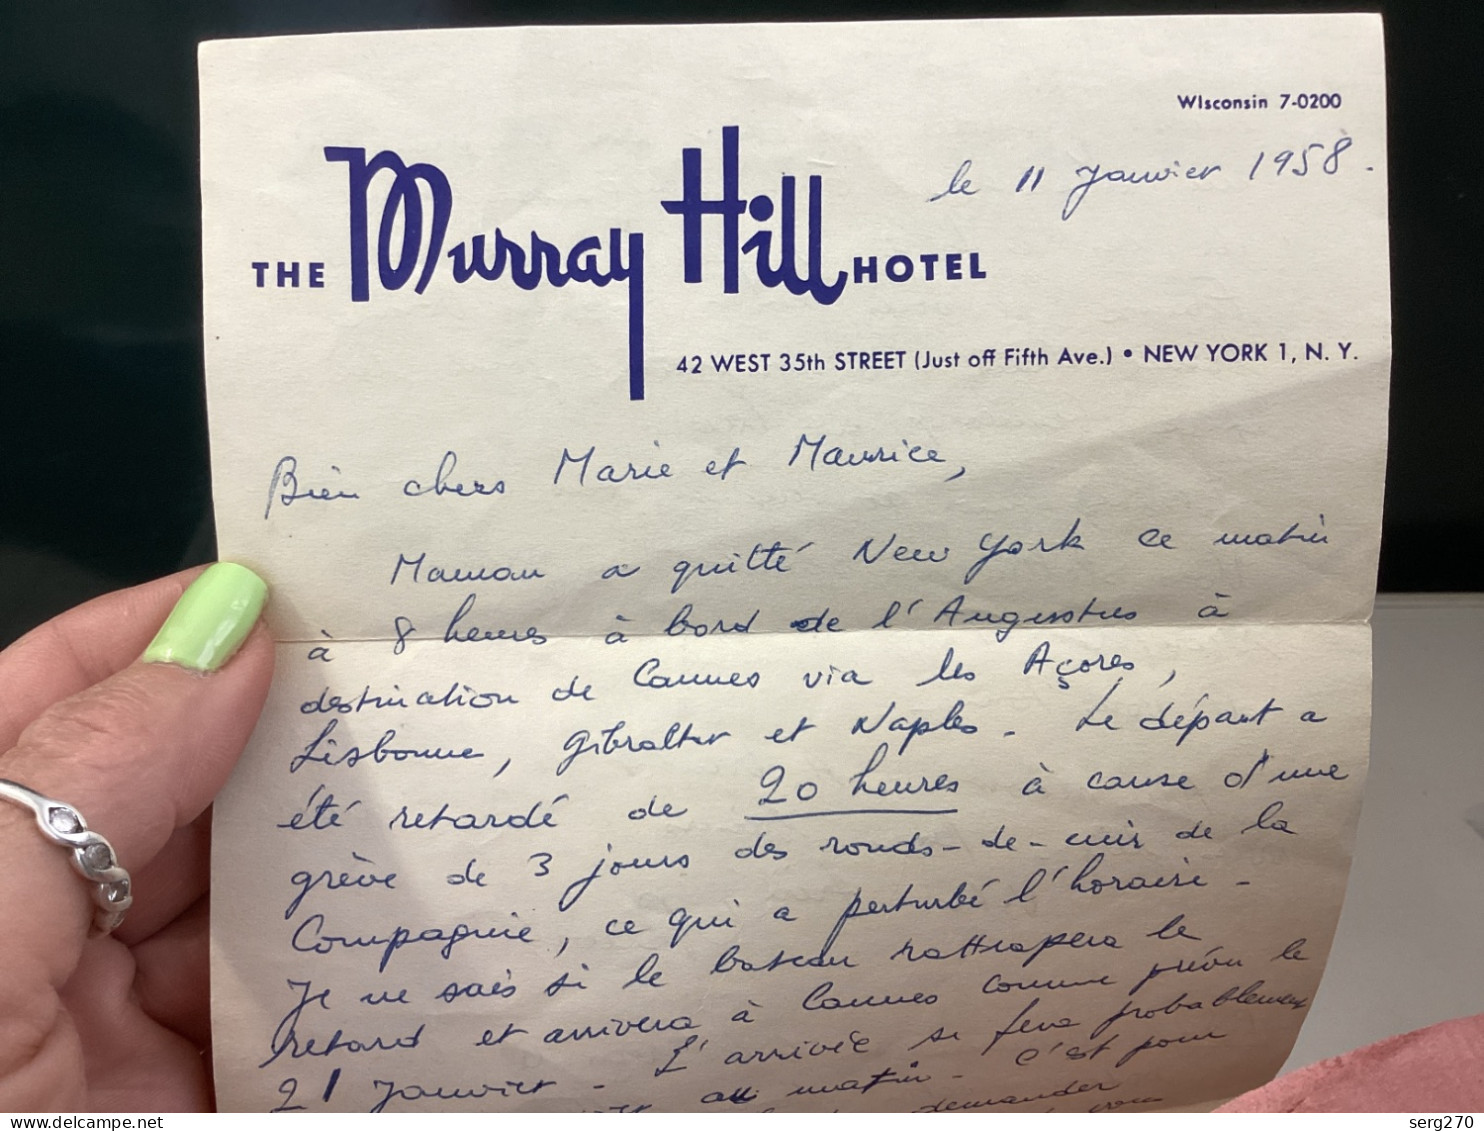 WIsconsin 7-0200
le 11 Janvier 1958.
THE Murray Hill HOTEL
42 WEST 35th STREET (Just off Fifth Ave.) • NEW YORK 1, N. Y.
Bien chers Marie et Maurice,
Maman a quitté New York ce matin
à 8 heures à bord de l'Augustus à
destination de Cannes via les Açores,
Lisbonne, Gibraltar et Naples. Le départ a
été retardé de 20 heures à cause d'une
grève de 3 jours des ronds-de-cuir de la
Compagnie, ce qui a perturbé l'horaire.
Je ne sais si le bateau rattrapera le
retard et arrivera à Cannes comme prévu le
21 Janvier. L'arrivée se fera probablement
au matin. C'est pour
demander
delcampe.net
serg270